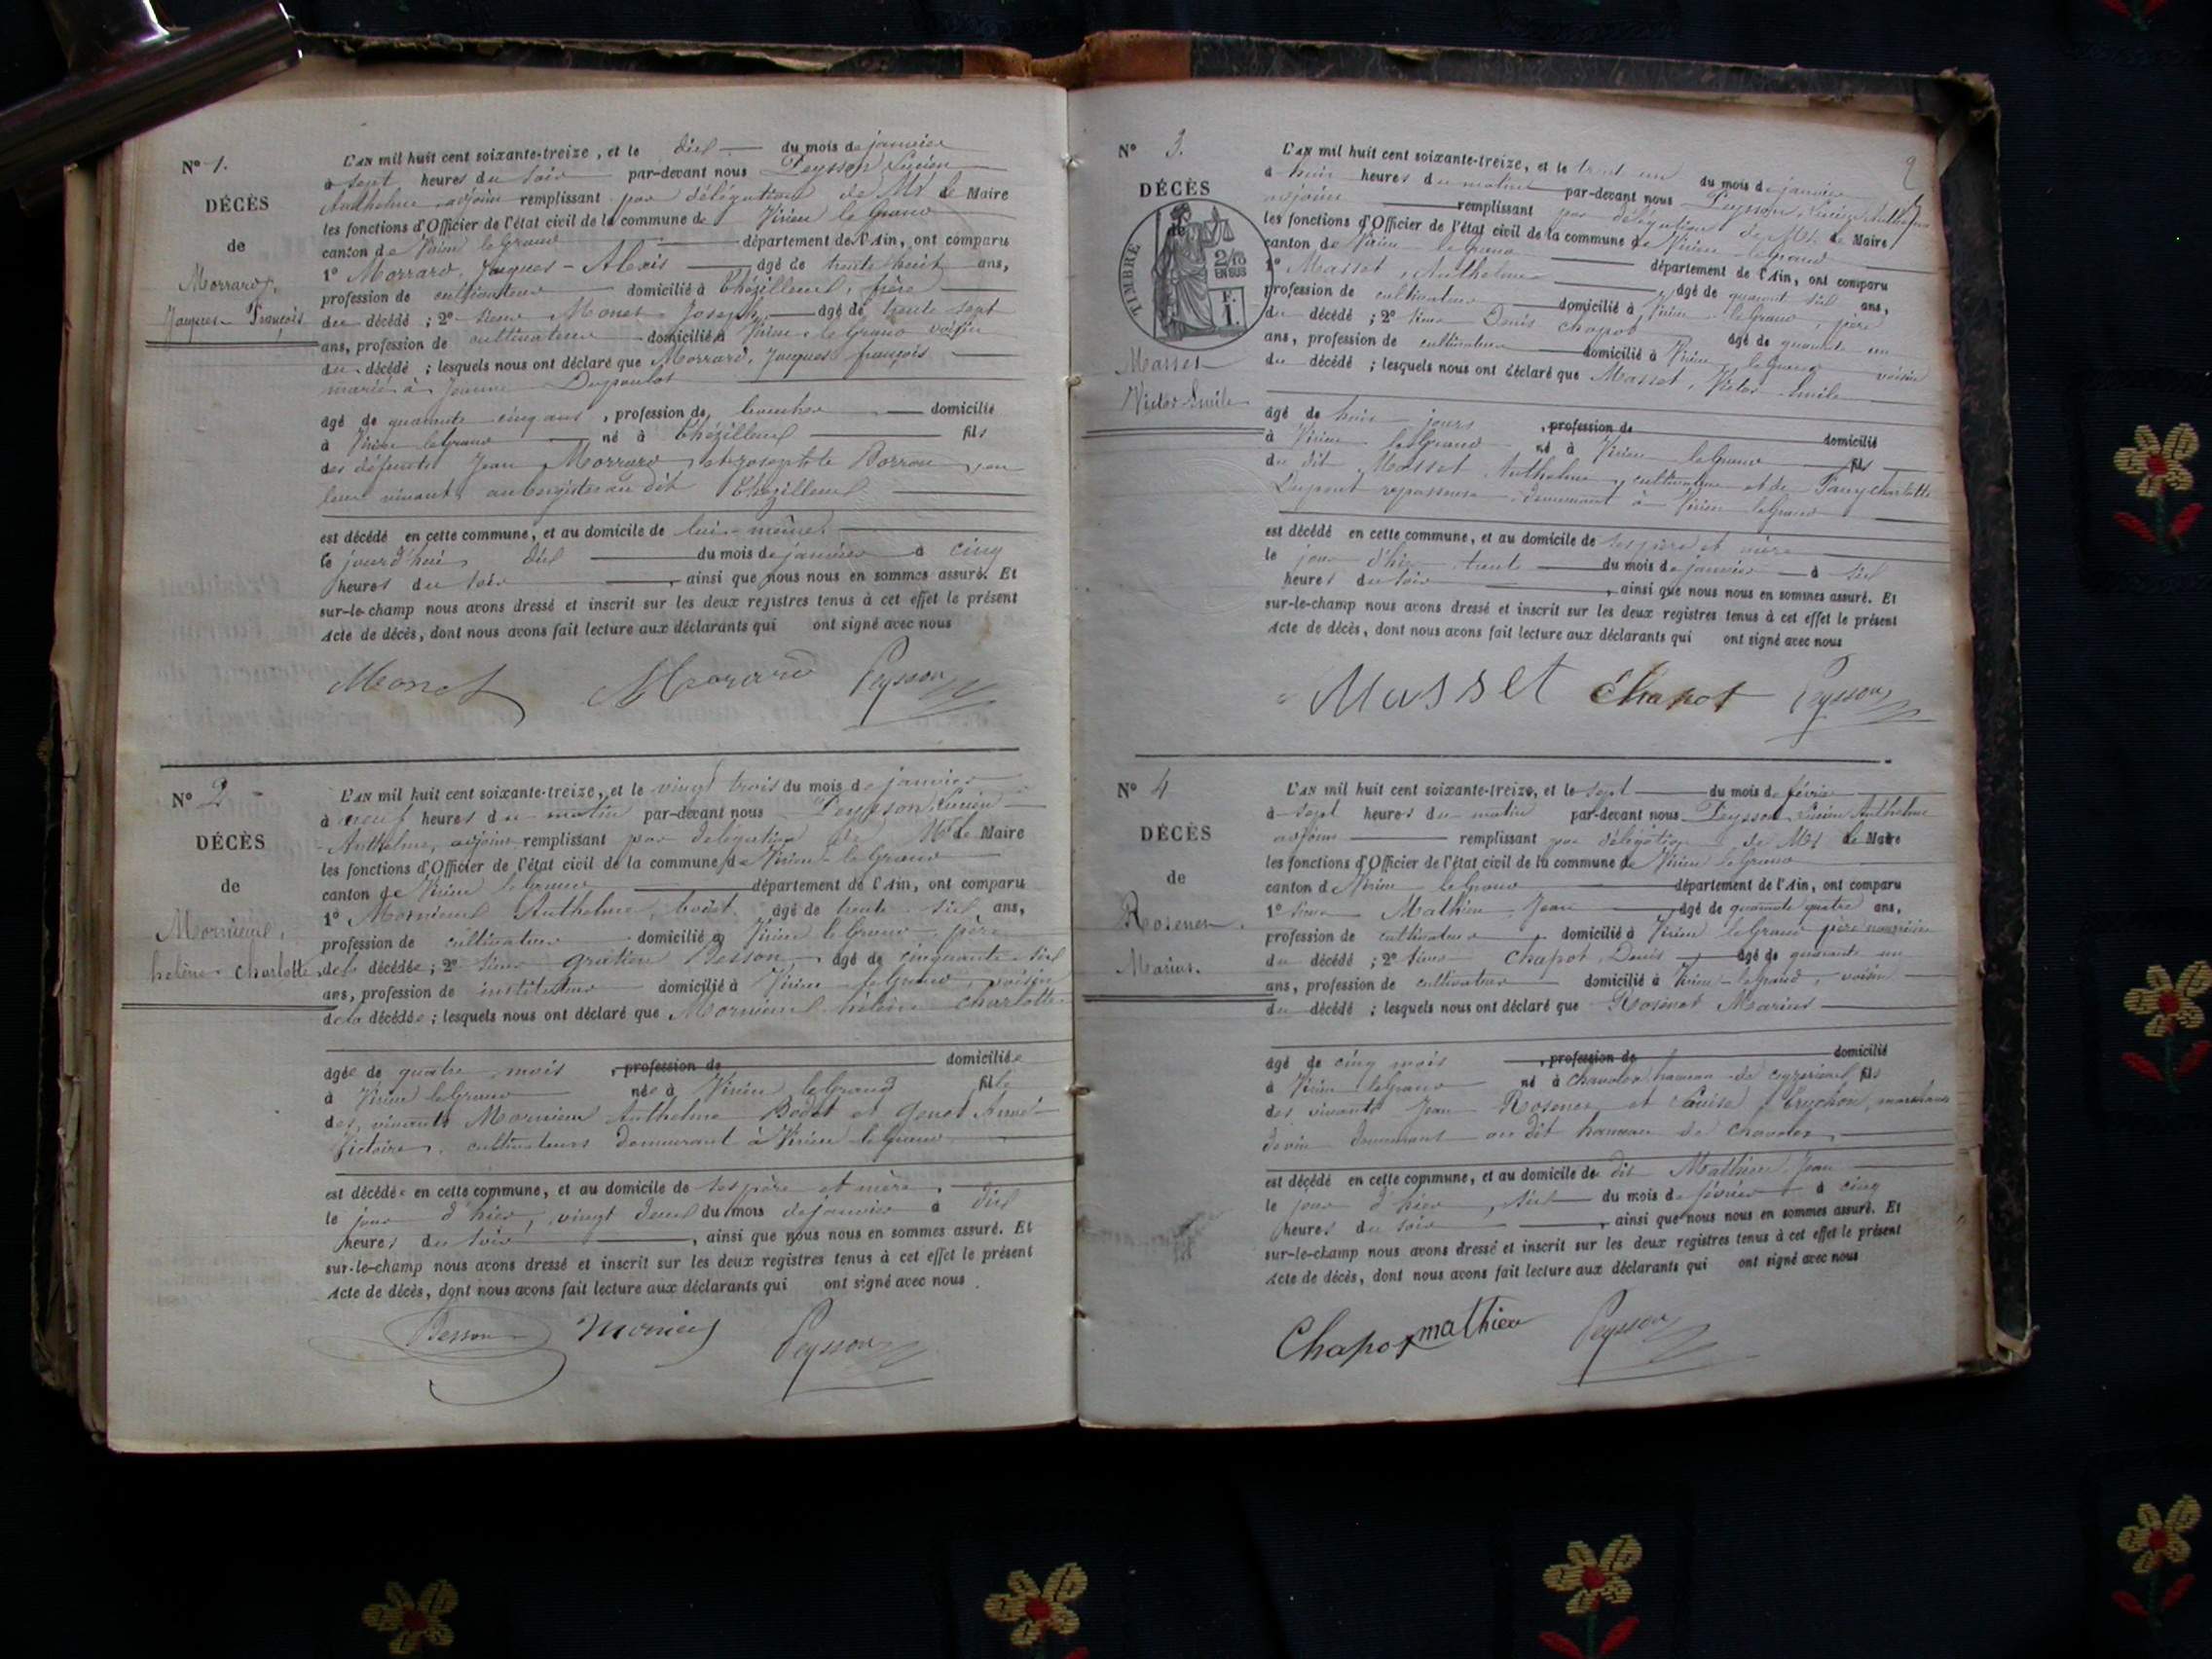 N° 1.
DÉCÈS
de
Morrard
Jacques François
L'AN mil huit cent soixante-treize, et le dix du mois de janvier
à sept heures du soir par-devant nous Peysson Lucien
Anthelme adjoint remplissant par délégation de Mr le Maire
les fonctions d'Officier de l'état civil de la commune de Virieu le Grand
canton de Virieu le Grand département de l'Ain, ont comparu
1° Morrard, Jacques-Alexis âgé de trente huit ans,
profession de cultivateur domicilié à Chézilleux, frère
du décédé ; 2° sieur Monet Joseph âgé de trente sept
ans, profession de cultivateur domicilié à Virieu le Grand voisin
du décédé ; lesquels nous ont déclaré que Morrard, Jacques françois
marié à Jeanne
âgé de quarante cinq ans, profession de boucher domicilié
à Virieu le Grand né à Chézilleux fils
des défunts Jean Morrard et
leur vivant aubergistes au dit Chézilleux
est décédé en cette commune, et au domicile de lui-même
le jourd'hui dix du mois de janvier à cinq
heures du soir, ainsi que nous nous en sommes assuré. Et
sur-le-champ nous avons dressé et inscrit sur les deux registres tenus à cet effet le présent
Acte de décès, dont nous avons fait lecture aux déclarants qui ont signé avec nous
Monet Morard Peysson
N° 2
DÉCÈS
de
Mornieux,
helène Charlotte
L'AN mil huit cent soixante-treize, et le vingt trois du mois de janvier
à neuf heures du matin par-devant nous Peysson Lucien
Anthelme, adjoint remplissant par délégation de Mr le Maire
les fonctions d'Officier de l'état civil de la commune de Virieu le Grand
canton de Virieu le Grand département de l'Ain, ont comparu
1° Mornieux Anthelme âgé de trente six ans,
profession de cultivateur domicilié à Virieu le Grand père
de la décédée ; 2° sieur Gratien Besson, âgé de cinquante six
ans, profession de instituteur domicilié à Virieu le Grand, voisin
de la décédée ; lesquels nous ont déclaré que Mornieux hélène Charlotte
âgée de quatre mois, profession de domiciliée
à Virieu le Grand née à Virieu le Grand fille
des vivants Mornieux Anthelme Bodet et Genet
Victoire, cultivateurs demeurant à Virieu le Grand
est décédée en cette commune, et au domicile de ses père et mère,
le jour d'hier, vingt deux du mois de janvier à dix
heures du soir, ainsi que nous nous en sommes assuré. Et
sur-le-champ nous avons dressé et inscrit sur les deux registres tenus à cet effet le présent
Acte de décès, dont nous avons fait lecture aux déclarants qui ont signé avec nous.
Besson Peysson
N° 3.
2
DÉCÈS
de
TIMBRE
2/10
EN SUS
F.
1.
Masset
Victor Emile
L'AN mil huit cent soixante-treize, et le trent un du mois de janvier
à huit heures du matin par-devant nous Peysson, Lucien Anthelme
adjoint remplissant par délégation de Mr le Maire
les fonctions d'Officier de l'état civil de la commune de Virieu le Grand
canton de Virieu le Grand département de l'Ain, ont comparu
1° Masset, Anthelme âgé de quarant six ans,
profession de cultivateur domicilié à Virieu le Grand, père
du décédé ; 2° sieur Denis Chapot âgé de quarante un
ans, profession de cultivateur domicilié à Virieu le Grand voisin
du décédé ; lesquels nous ont déclaré que Masset, Victor Emile
âgé de huit jours, profession de domicilié
à Virieu le Grand né à Virieu le Grand fils
du dit Masset Anthelme, cultivateur et de Fany Charlotte
Dupont repasseuse demeurant à Virieu le Grand
est décédé en cette commune, et au domicile de ses père et mère
le jour d'hier trente du mois de janvier à six
heures du soir, ainsi que nous nous en sommes assuré. Et
sur-le-champ nous avons dressé et inscrit sur les deux registres tenus à cet effet le présent
Acte de décès, dont nous avons fait lecture aux déclarants qui ont signé avec nous
Masset Chapot Peysson
N° 4
DÉCÈS
de
Rosener
Marius.
L'AN mil huit cent soixante-treize, et le sept du mois de février
à sept heures du matin par-devant nous Peysson Lucien Anthelme
adjoint remplissant par délégation de Mr le Maire
les fonctions d'Officier de l'état civil de la commune de Virieu le Grand
canton de Virieu le Grand département de l'Ain, ont comparu
1° sieur Mathieu Jean âgé de quarante quatre ans,
profession de cultivateur domicilié à Virieu le Grand père nourricier
du décédé ; 2° sieur Chapot, Denis âgé de quarante un
ans, profession de cultivateur domicilié à Virieu-le Grand, voisin
du décédé ; lesquels nous ont déclaré que Marius
âgé de cinq mois, profession de domicilié
à Virieu le Grand né à hameau de fils
des vivants Jean Rosener et Louise
demeurant au dit hameau de
est décédé en cette commune, et au domicile de dit Mathieu Jean
le jour d'hier, six du mois de février à cinq
heures du soir, ainsi que nous nous en sommes assuré. Et
sur-le-champ nous avons dressé et inscrit sur les deux registres tenus à cet effet le présent
Acte de décès, dont nous avons fait lecture aux déclarants qui ont signé avec nous
Chapot mathieu Peysson